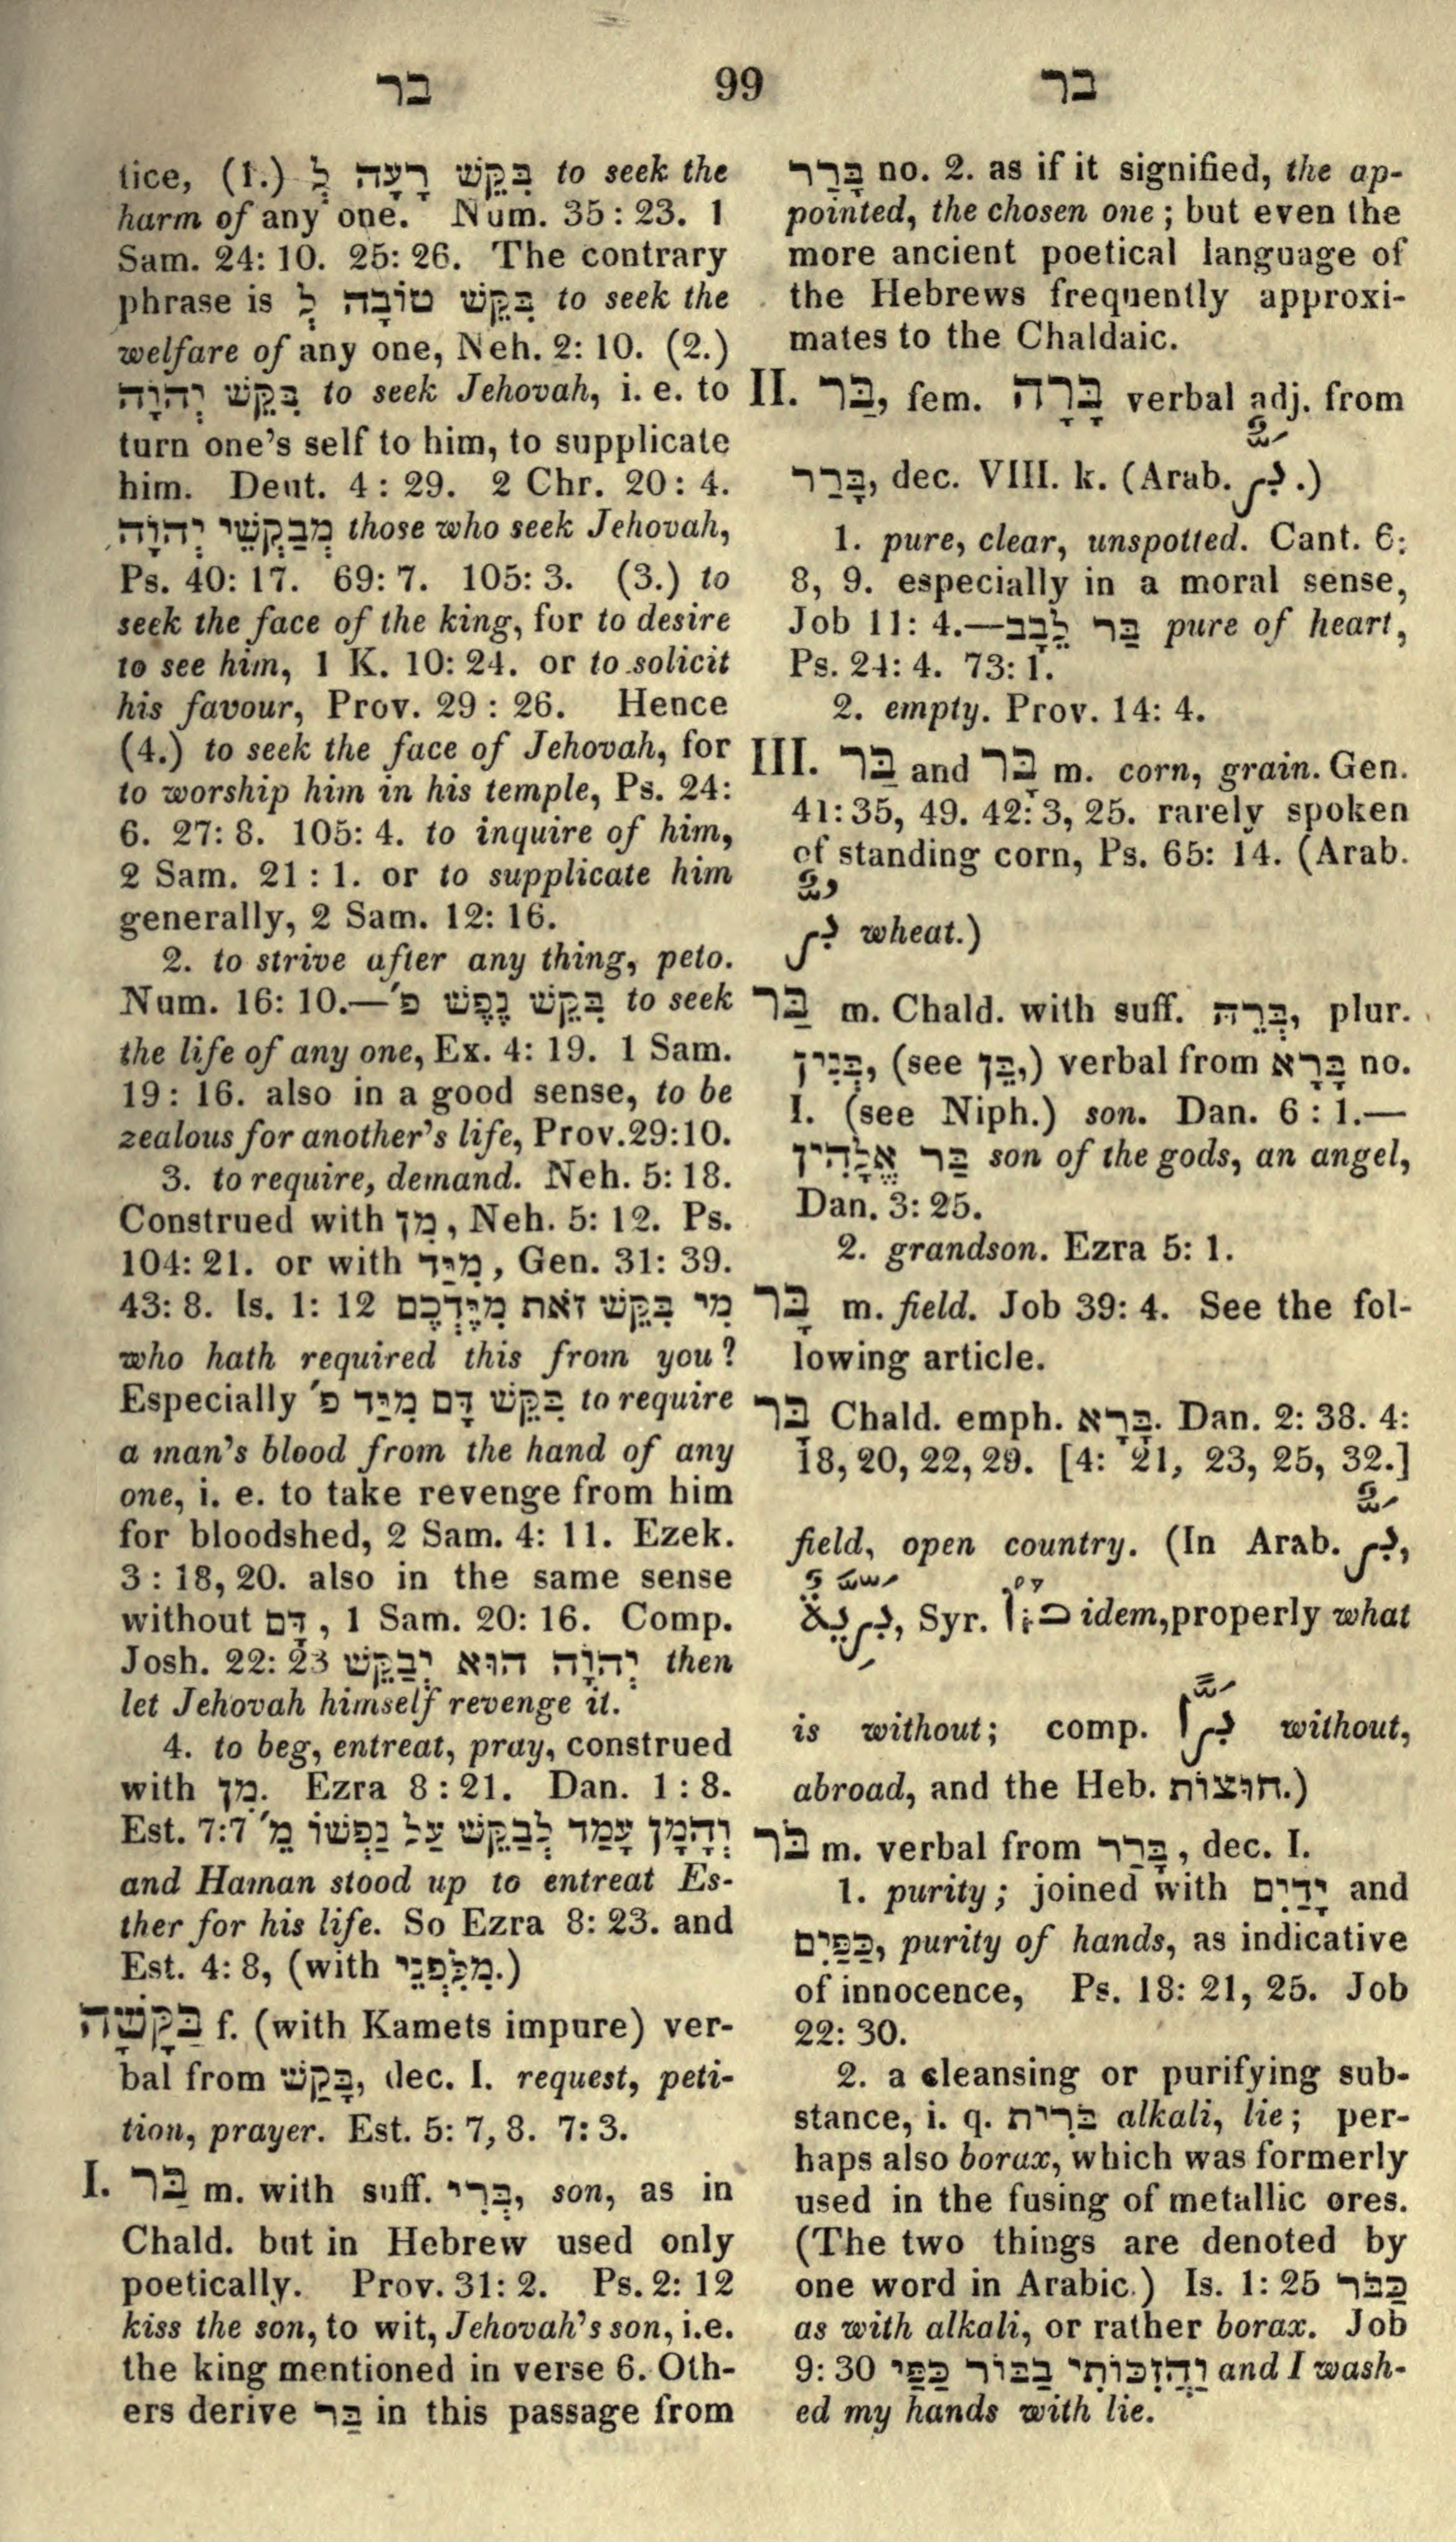 בר 99 בר
tice, (1.) בִּקֵּשׁ רָעָה לְ to seek the
harm of any one. Num. 35 : 23. 1
Sam. 24: 10. 25: 26. The contrary
phrase is בִּקֵּשׁ טוֹבָה לְ to seek the
welfare of any one, Neh. 2: 10. (2.)
בִּקֵּשׁ יְהוָֹה to seek Jehovah, i. e. to
turn one's self to him, to supplicate
him. Deut. 4 : 29. 2 Chr. 20 : 4.
מְבַקְשֵׁי יְהוָֹה those who seek Jehovah,
Ps. 40: 17. 69: 7. 105: 3. (3.) to
seek the face of the king, for to desire
to see him, 1 K. 10: 24. or to solicit
his favour, Prov. 29 : 26. Hence
(4.) to seek the face of Jehovah, for
to worship him in his temple, Ps. 24:
6. 27: 8. 105: 4. to inquire of him,
2 Sam. 21 : 1. or to supplicate him
generally, 2 Sam. 12: 16.
2. to strive after any thing, peto.
Num. 16: 10.—בִּקֵּשׁ נֶפֶשׁ פ׳ to seek
the life of any one, Ex. 4: 19. 1 Sam.
19: 16. also in a good sense, to be
zealous for another's life, Prov. 29:10.
3. to require, demand. Neh. 5: 18.
Construed with מִן, Neh. 5: 12. Ps.
104: 21. or with מִיַּד, Gen. 31: 39.
43: 8. Is. 1: 12 מִי בִקֵּשׁ זֹאת מִיֶּדְכֶם
who hath required this from you?
Especially בִּקֵּשׁ דָּם מִיַּד פ׳ to require
a man's blood from the hand of any
one, i. e. to take revenge from him
for bloodshed, 2 Sam. 4: 11. Ezek.
3 : 18, 20. also in the same sense
without דָּם, 1 Sam. 20: 16. Comp.
Josh. 22: 23 יְהוָֹה הוּא יְבַקֵּשׁ then
let Jehovah himself revenge it.
4. to beg, entreat, pray, construed
with מִן. Ezra 8 : 21. Dan. 1 : 8.
Est. 7:7 וְהָמָן עָמַד לְבַקֵּשׁ עַל נַפְשׁוֹ מֵ׳
and Haman stood up to entreat Es-
ther for his life. So Ezra 8: 23. and
Est. 4: 8, (with מִלִּפְנֵי.)
בַּקָּשָׁה f. (with Kamets impure) ver-
bal from בָּקַשׁ, dec. I. request, peti-
tion, prayer. Est. 5: 7, 8. 7: 3.
I. בַּר m. with suff. בְּרִי, son, as in
Chald. but in Hebrew used only
poetically. Prov. 31: 2. Ps. 2: 12
kiss the son, to wit, Jehovah's son, i.e.
the king mentioned in verse 6. Oth-
ers derive בַּר in this passage from
בָּרַר no. 2. as if it signified, the ap-
pointed, the chosen one; but even the
more ancient poetical language of
the Hebrews frequently approxi-
mates to the Chaldaic.
II. בַּר, fem. בָּרָה verbal adj. from
בָּרַר, dec. VIII. k. (Arab. بَرٌّ.)
1. pure, clear, unspotted. Cant. 6:
8, 9. especially in a moral sense,
Job 11: 4.—בַּר לֵבָב pure of heart,
Ps. 24: 4. 73: 1.
2. empty. Prov. 14: 4.
III. בַּר and בָּר m. corn, grain. Gen.
41: 35, 49. 42: 3, 25. rarely spoken
of standing corn, Ps. 65: 14. (Arab.
بُرٌّ wheat.)
בַּר m. Chald. with suff. בְּרֵהּ, plur.
בְּנִין, (see בֵּן,) verbal from בָּרָא no.
I. (see Niph.) son. Dan. 6 : 1.—
בַּר אֱלָהִין son of the gods, an angel,
Dan. 3: 25.
2. grandson. Ezra 5: 1.
בָּר m. field. Job 39: 4. See the fol-
lowing article.
בָּר Chald. emph. בָּרָא. Dan. 2: 38. 4:
18, 20, 22, 29. [4: 21, 23, 25, 32.]
field, open country. (In Arab. بَرٌّ,
بَرِّيَّةٌ, Syr. ܒܪܐ idem, properly what
is without; comp. بَرًّا without,
abroad, and the Heb. חוּצוֹת.)
בֹּר m. verbal from בָּרַר, dec. I.
1. purity; joined with יָדַיִם and
כַּפַּיִם, purity of hands, as indicative
of innocence, Ps. 18: 21, 25. Job
22: 30.
2. a cleansing or purifying sub-
stance, i. q. בֹּרִית alkali, lie; per-
haps also borax, which was formerly
used in the fusing of metallic ores.
(The two things are denoted by
one word in Arabic.) Is. 1: 25 כַּבֹּר
as with alkali, or rather borax. Job
9: 30 וַהֲזִכּוֹתִי בְּבוֹר כַּפָּי and I wash-
ed my hands with lie.